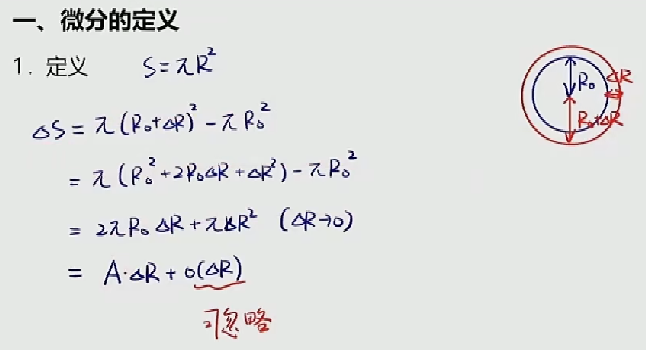 一、微分的定义
1. 定义 S=πR²
ΔS = π(R₀+ΔR)² - πR₀²
= π(R₀²+2R₀ΔR+ΔR²) - πR₀²
= 2πR₀ΔR + πΔR² (ΔR→0)
= A·ΔR + o(ΔR)
可忽略
R₀ ΔR
R₀+ΔR